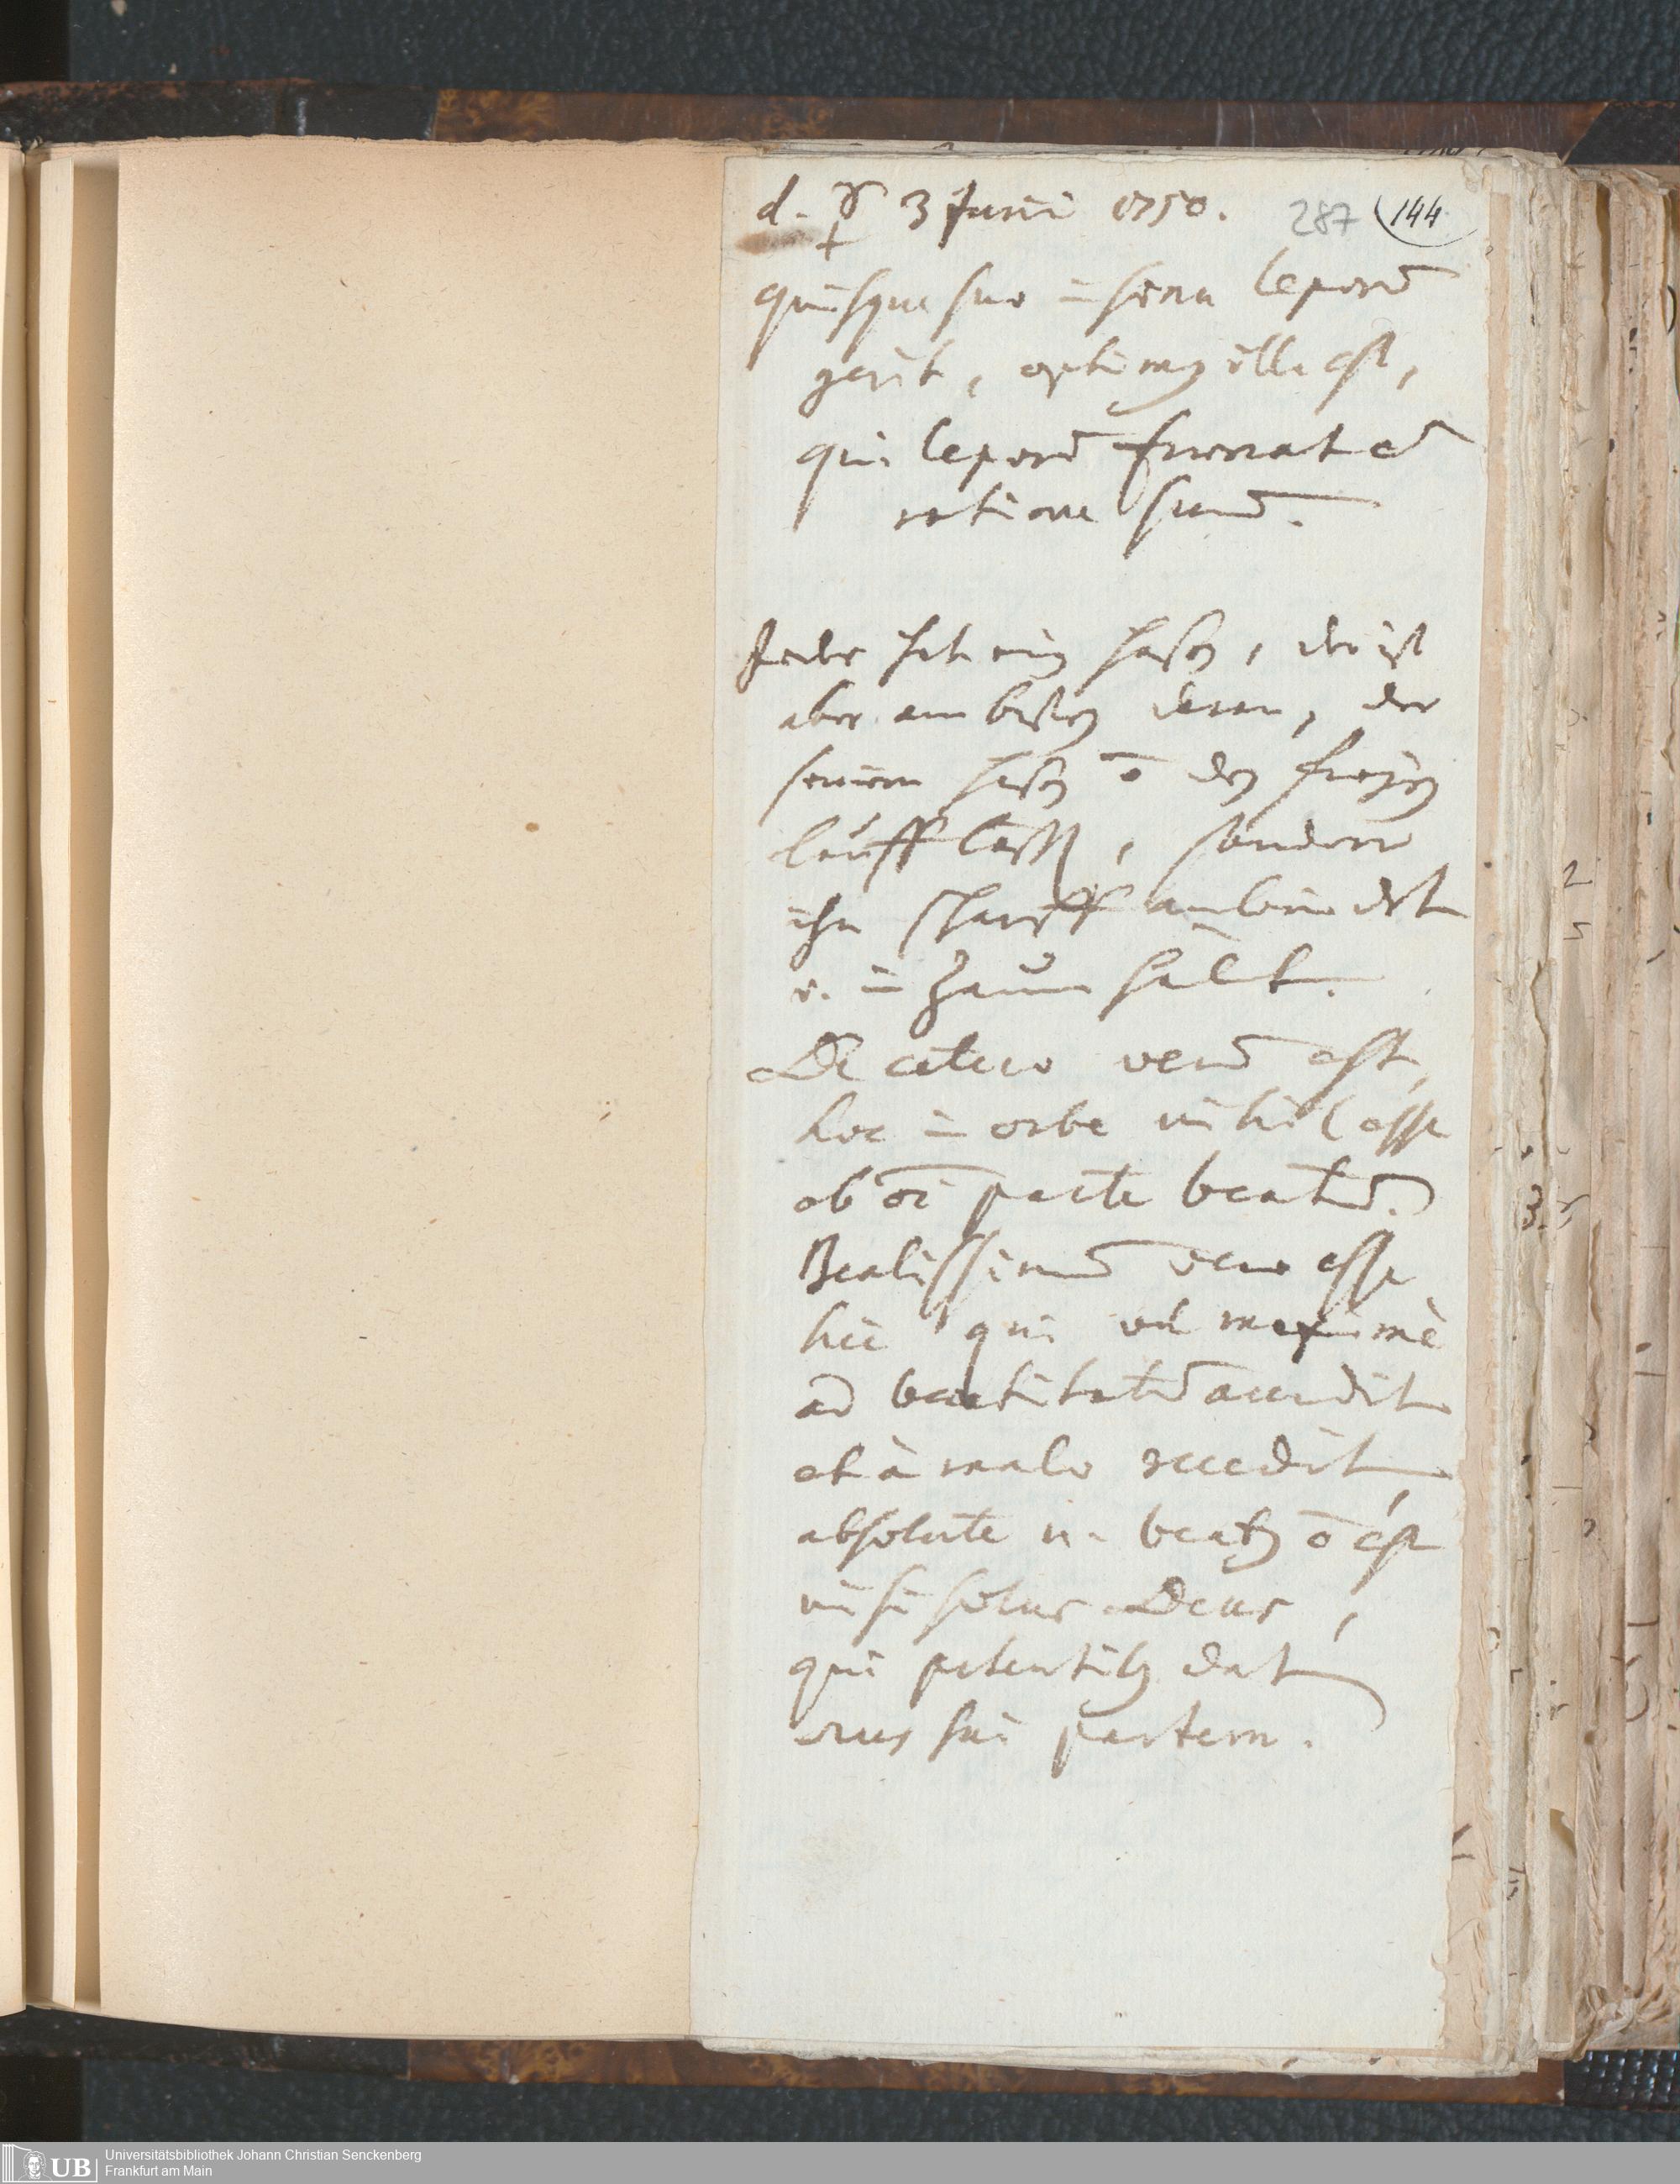 d. ☿ 3 Junii 1750. 287 144
quisque suo in sinu leporē
gerit, optimꝰ ille est,
qui leporē frenat cū
ratione suū.
Jeder hat ein hasen, der ist
aber am besten daran, der
seinem hasen ō den freyen
lauff läst, sondern
ihn scharff anbindet
u. in Zaum hält.
De cetero verū est,
hoc in orbe nihil esse
ab oī parte beatū.
Beatissimū vero esse
hic qui vel maximè
ad beatitatē accedit
et à malo recedit,
absolute n. beatꝰ ō est
nisi solus Deus,
qui petentibꝰ dat
sui partem.
UB Universitätsbibliothek Johann Christian Senckenberg
Frankfurt am Main